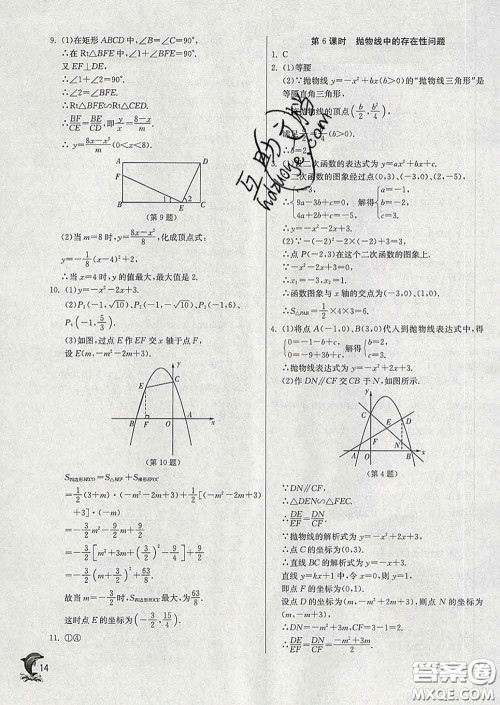 9. (1)在矩形ABCD中,∠B=∠C=90°.
∴在Rt△BFE中,∠1+∠BFE=90°.
又EF⊥DE,
∴∠1+∠2=90°.
∴∠2=∠BFE.
∴Rt△BFE∽Rt△CED.
∴BF/CE=BE/CD,即y/x=(8-x)/m.
∴y=(8x-x²)/m(0<x<8).
A
D
F
1
2
B
E
C
(第9题)
(2)当m=8时,y=(8x-x²)/8,化成顶点式:
y=-1/8(x-4)²+2,
∴当x=4时,y的值最大,最大值是2.
10. (1)y=-x²-2x+3.
(2)P₁(-1,√10),P₂(-1,-√10),P₃(-1,6),
P₄(-1,5/3)
(3)如图,过点E作EF交x轴于点F,
设E(m,-m²-2m+3).
y
E
C
B
F
O
A
x
(第10题)
∴S四边形BOCE=S△BEF+S梯形EFOC
=1/2(3+m)·(-m²-2m+3)+1/2(-m²-2m
+3+3)·(-m)=-3/2m²-9/2m+9/2
=-3/2[m²+3m+(3/2)²-9/4]+9/2
=-3/2(m+3/2)²+63/8.
故当m=-3/2时,S四边形BOCE最大=63/8.
这时点E的坐标为(-3/2,15/4).
11. ①④
14
第6课时 抛物线中的存在性问题
1. C
2. (1)等腰
(2)∵抛物线y=-x²+bx(b>0)的“抛物线三角形”是
等腰直角三角形,
抛物线的顶点(b/2,b²/4),
(b>0).
∴b=2.
二次函数的表达式为y=ax²+bx+c.
二次函数的图象经过点(0,3),(-3,0),(2,-5),
9a-3b+c=0, 4a+2b+c=-5. 解得{a=-1, b=-2, c=3.
(2)∵-(-2)²-2×(-2)+3=3,
∴点P(-2,3)在这个二次函数的图象上.
∵-x²-2x+3=0,
∴x₁=-3,x₂=1.
∴函数图象与x轴的交点为(-3,0),(1,0).
∴S△PAB=1/2×4×3=6.
4. (1)将点A(-1,0)、B(3,0)代入到抛物线表达式中,得
{0=-1-b+c, 0=-9+3b+c, 解得{b=2, c=3.
∴抛物线表达式为y=-x²+2x+3.
(2)作DN∥CF交CB于N,如图所示.
y
C
D
E
F
N
A
O
B
x
(第4题)
∵DN∥CF,
∴△DEN∽△FEC.
∴DE/EF=DN/CF.
∵抛物线的解析式为y=-x²+2x+3,
∴点C的坐标为(0,3).
∴直线BC的解析式为y=-x+3.
直线y=kx+1中,令x=0,得y=1.
即点F的坐标为(0,1).
设点D的坐标为(m,-m²+2m+3),则点N的坐标为
(m,-m+3).
∴DN=-m²+3m,CF=3-1=2.
∴DE/EF=DN/CF=(-m²+3m)/2.
互助
hzzuoye.com
答案圈
MXQE.COM